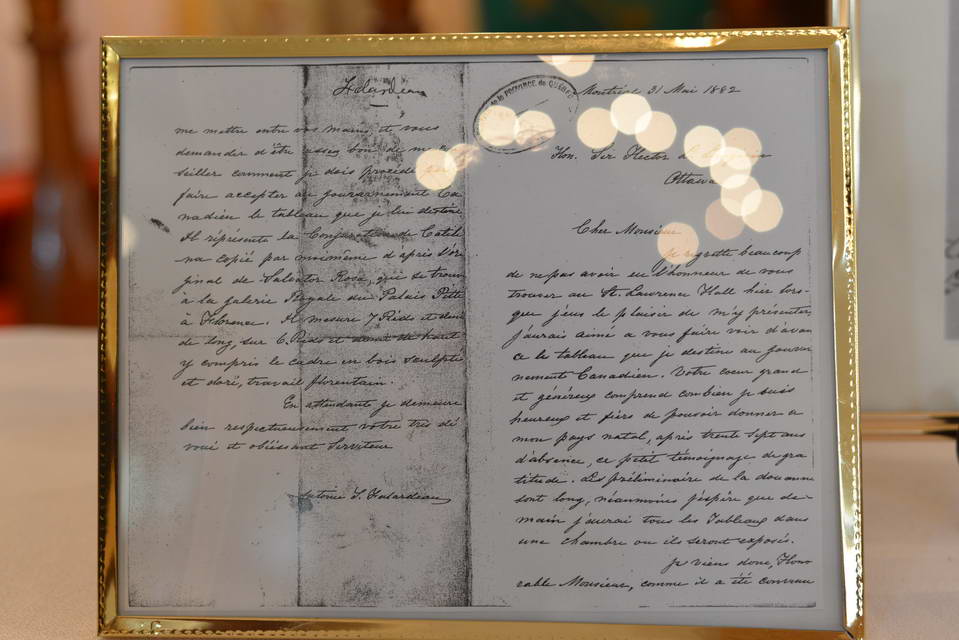 de la PROVINCE de QUÉBEC
Montréal 31 Mai 1882
Hon. Sir Hector
Ottawa
Cher Monsieur
Je regrette beaucoup
de ne pas avoir eu l'honneur de vous
trouver au St. Lawrence Hall hier lors-
que j'eus le plaisir de m'y présenter,
j'aurais aimé a vous faire voir d'avan
ce le tableau que je destine au gouver
nement Canadien. Votre coeur grand
et généreux comprend combien je suis
heureux et fiers de pouvoir donner a
mon pays natal, après trente sept ans
d'absence, ce petit témoignage de gra
titude. Les préliminaire de la douanne
sont long, néanmoins j'espère que de-
main j'aurai tous les Tableaux dans
une chambre ou ils seront exposés.
Je viens donc, Hono
rable Monsieur, comme il a été convenu
Falardeau
me mettre entre vos mains, et vous
demander d'être assez bon de me
seiller comment je dois procéder
faire accepter au gouvernement Ca
nadien le tableau que je lui destine
Il représente la Conjuration de Catili
na copié par moimême d'après l'ori
ginal de Salvator Rosa, que se trouve
à la galerie Royale du Palais Pitti
à Florence. Il mesure 7 Pieds et demi
de long, sur 6 Pieds et demi de haut
y compris le cadre en bois sculpté
et doré, travail florentain.
En attendant je demeure
bien respectueusement votre très dé
voué et obéissant Serviteur
Antoine S. Falardeau